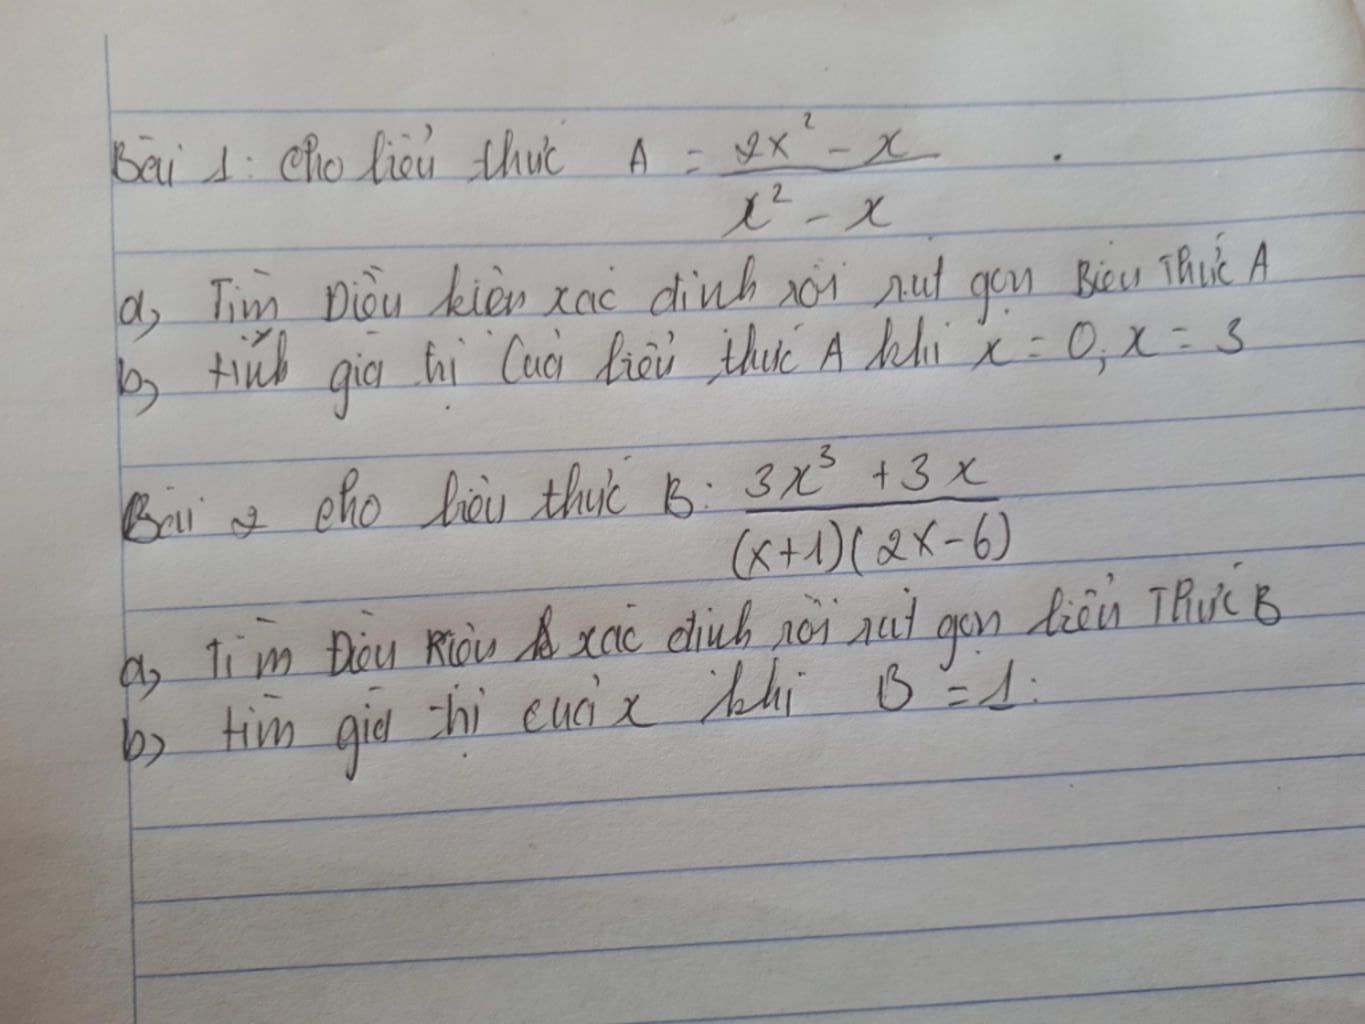 Bài 1: Cho biểu thức A = (2x² - x)/(x² - x)
a, Tìm Điều kiện xác định rồi rút gọn Biểu Thức A
b, tính giá trị của biểu thức A khi x = 0; x = 3
Bài 2 cho biểu thức B: (3x³ + 3x)/((x+1)(2x-6))
a, Tìm Điều Kiện xác định rồi rút gọn biểu Thức B
b, tìm giá trị của x khi B = 1: